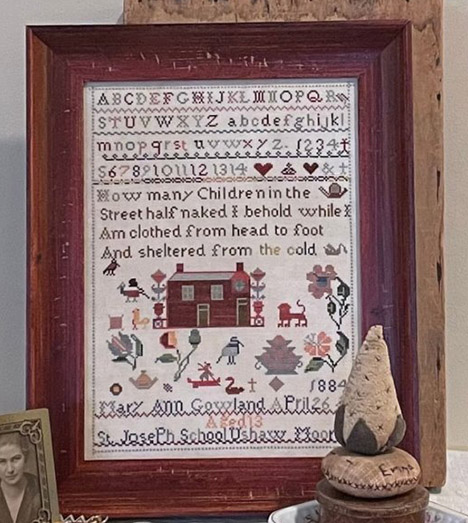 ABCDEFGHIJKLMNOPQR
STUVWXYZ abcdefghijkl
mnopqrst uvwxyz. 1234
56789101112 1314 &
How many Children in the
Street half naked I behold while I
Am clothed from head to foot
And sheltered from the cold
1884
Mary Ann Gowland April 26
Aged 13
St. Joseph School Ushaw Moor